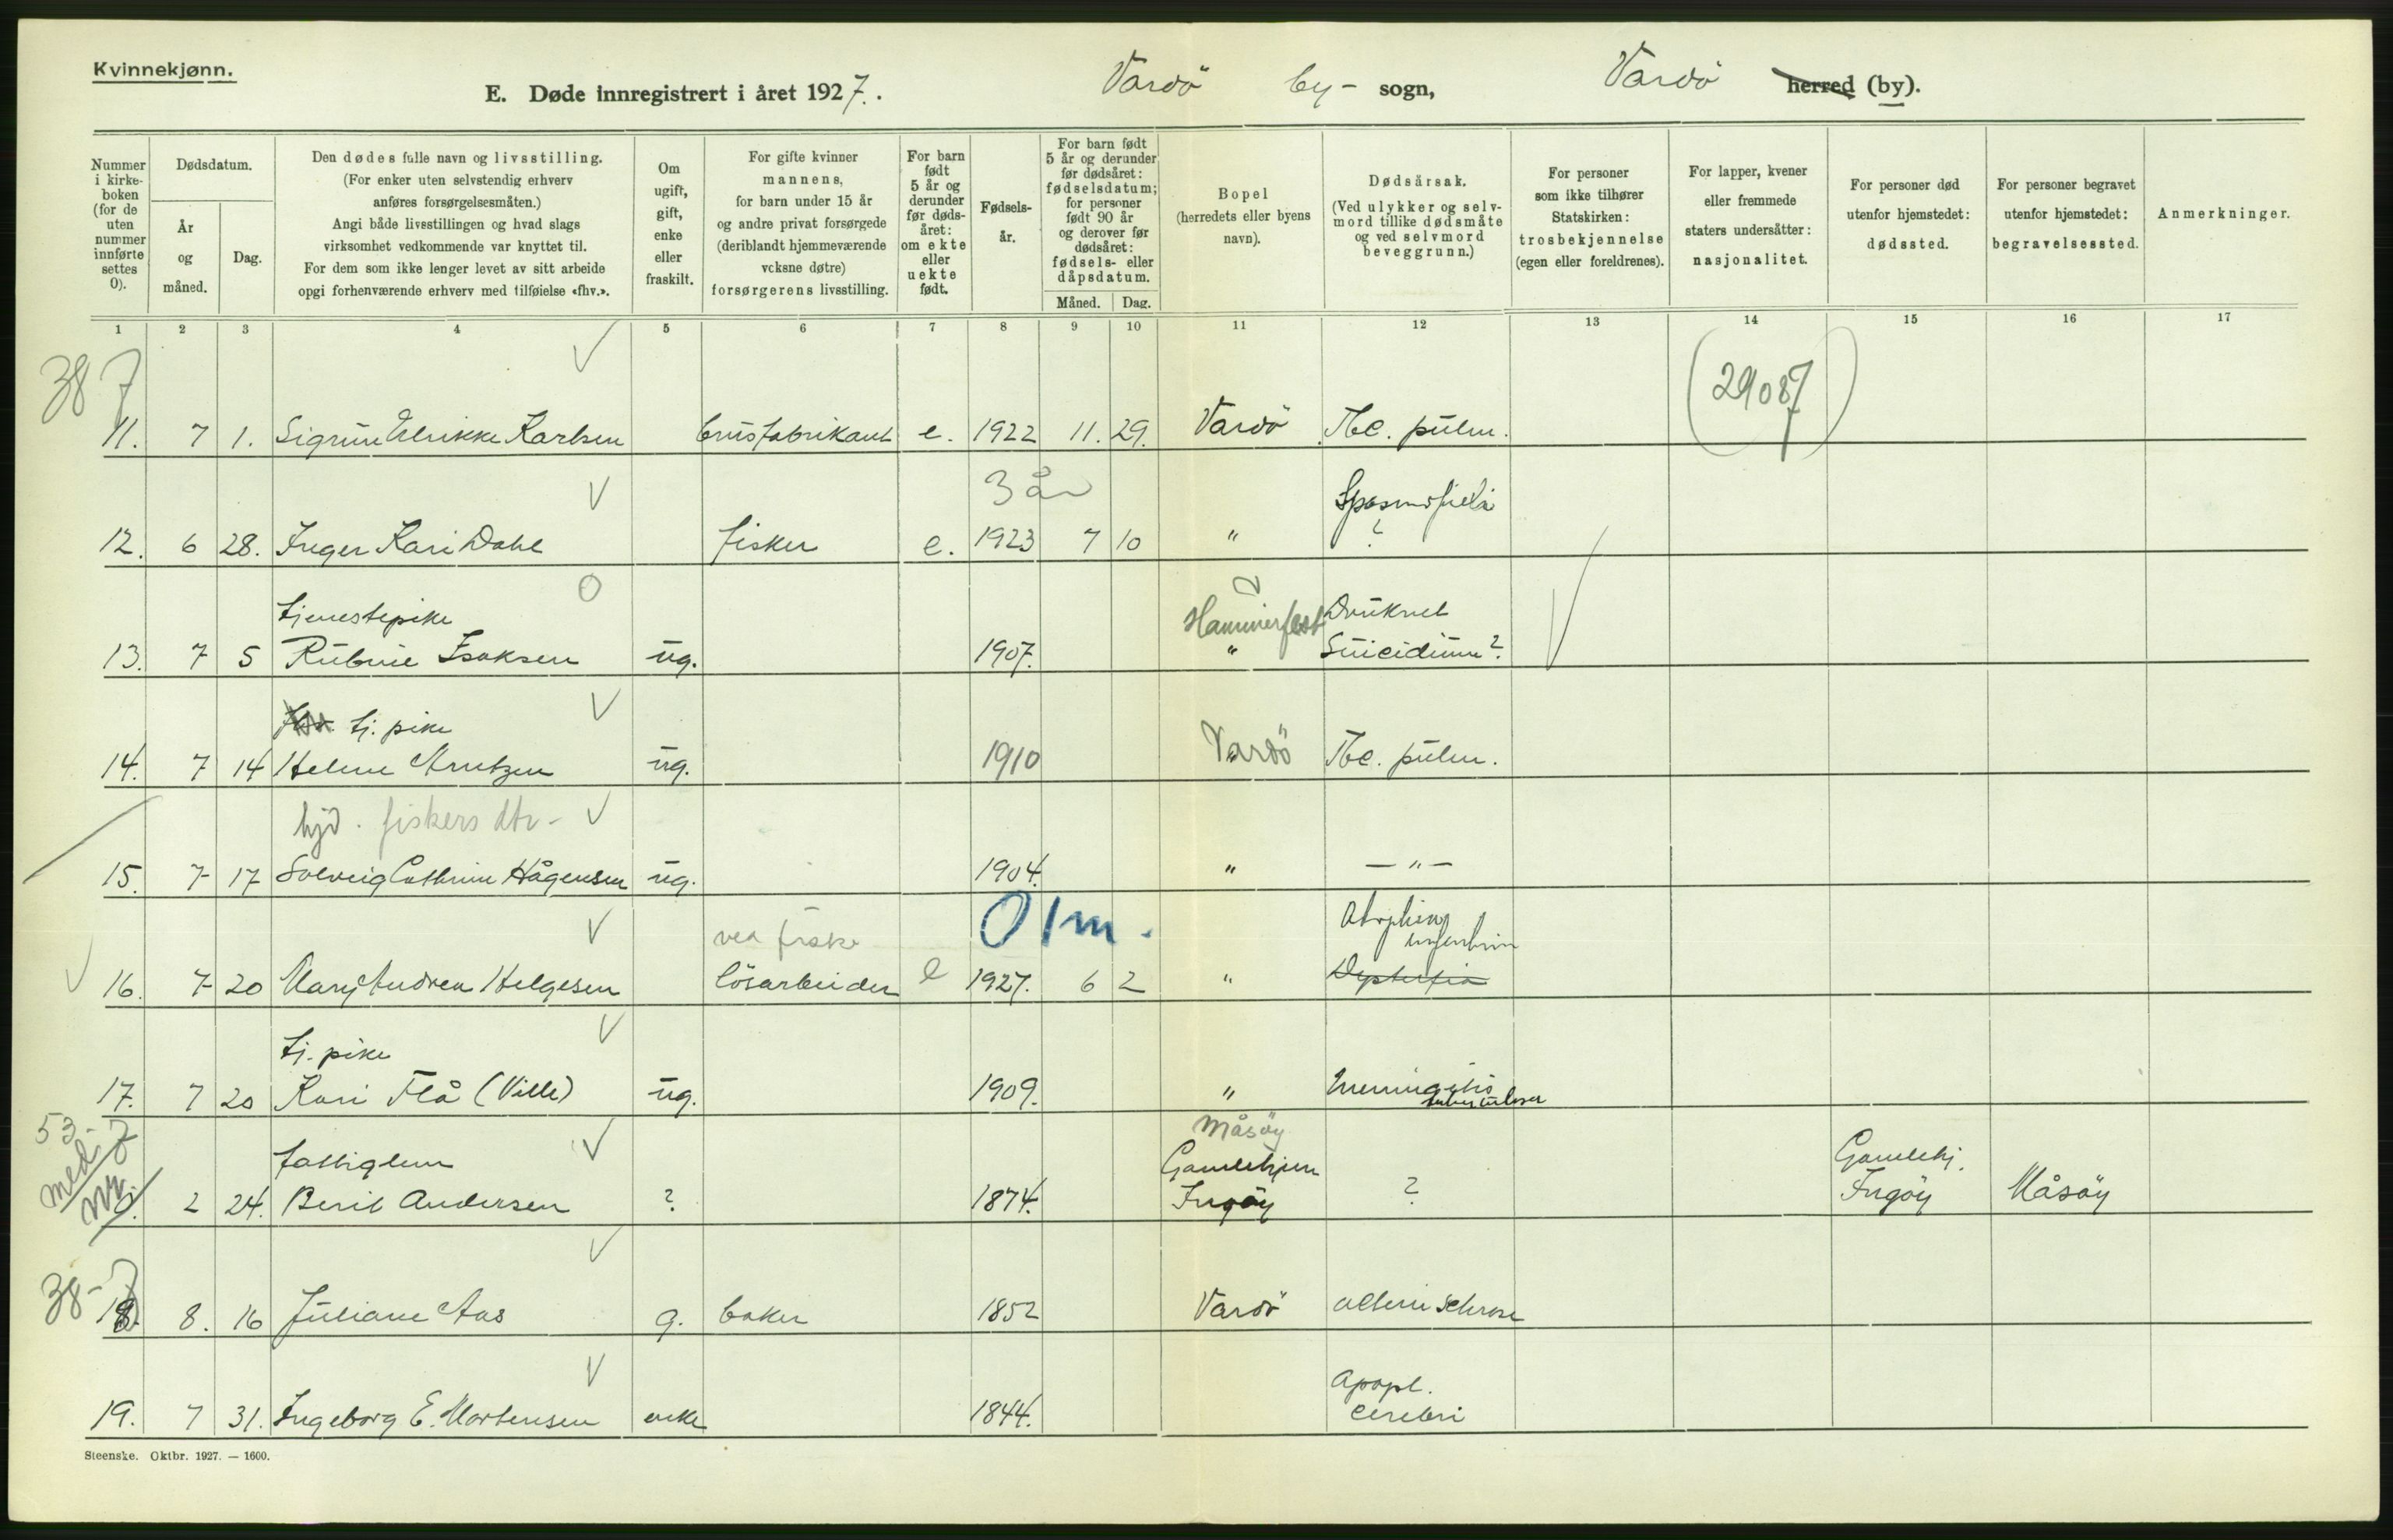 Kvinnekjønn.
E. Døde innregistrert i året 1927. Vardö by- sogn, Vardö herred (by).
Nummer i kirke- boken (for de uten nummer innførte settes 0).
Dødsdatum.
År og måned.
Dag.
Den dødes fulle navn og livsstilling.
(For enker uten selvstendig erhverv
anføres forsørgelsesmåten.)
Angi både livsstillingen og hvad slags
virksomhet vedkommende var knyttet til.
For dem som ikke lenger levet av sitt arbeide
opgi forhenværende erhverv med tilføielse «fhv.».
Om ugift, gift, enke eller fraskilt.
For gifte kvinner
mannens,
for barn under 15 år
og andre privat forsørgede
(deriblandt hjemmeværende
voksne døtre)
forsørgerens livsstilling.
For barn født 5 år og derunder før døds- året: om ekte eller uekte født.
Fødsels- år.
For barn født
5 år og derunder
før dødsåret:
fødselsdatum;
for personer
født 90 år
og derover før
dødsåret:
fødsels- eller
dåpsdatum.
Måned. Dag.
Bopel
(herredets eller byens
navn).
Dødsårsak.
(Ved ulykker og selv-
mord tillike dødsmåte
og ved selvmord
beveggrunn.)
For personer
som ikke tilhører
Statskirken:
trosbekjennelse
(egen eller foreldrenes).
For lapper, kvener
eller fremmede
staters undersåtter:
nasjonalitet.
For personer død
utenfor hjemstedet:
dødssted.
For personer begravet
utenfor hjemstedet:
begravelsessted.
Anmerkninger.
1 2 3 4 5 6 7 8 9 10 11 12 13 14 15 16 17
38 7
(29087)
11. 7 1. Sigrun Ulrikke Karlsen brusfabrikant e. 1922 11. 29. Vardö Tbc. pulm.
3 år
Spasmofieli
12. 6 28. Inger Kari Dahl fisker e. 1923 7 10 " ?
tjenestepike Hammerfest Druknet
13. 7 5 Rubine Isaksen ug. 1907. " Suicidium?
tj. pike
14. 7 14 Helene Arntzen ug. 1910 Vardö Tbc. pulm.
hjd. fiskers dtr-
15. 7 17 Solveig Cathrine Hågensen ug. 1904. " — " —
ved fiske 0 1 m.
16. 7 20 Mary Andrea Helgesen lösarbeider e 1927. 6 2 " Dyspepsia
tj. pike
17. 7 20 Kari Flå (Ville) ug. 1909. " Meningitis
tuberculosa
53-7
med. nr.
Måsöy
fattiglem Gamvikjen Gamlehj.
0. 2 24. Berit Andersen ? 1874. Ingöy ? Ingöy Måsöy
38-7
18. 8. 16 Juliane Aas g. baker 1852 Vardö
Apopl.
19. 7 31. Ingeborg E. Mortensen enke 1844. cerebri
Steenske. Oktbr. 1927. — 1600.